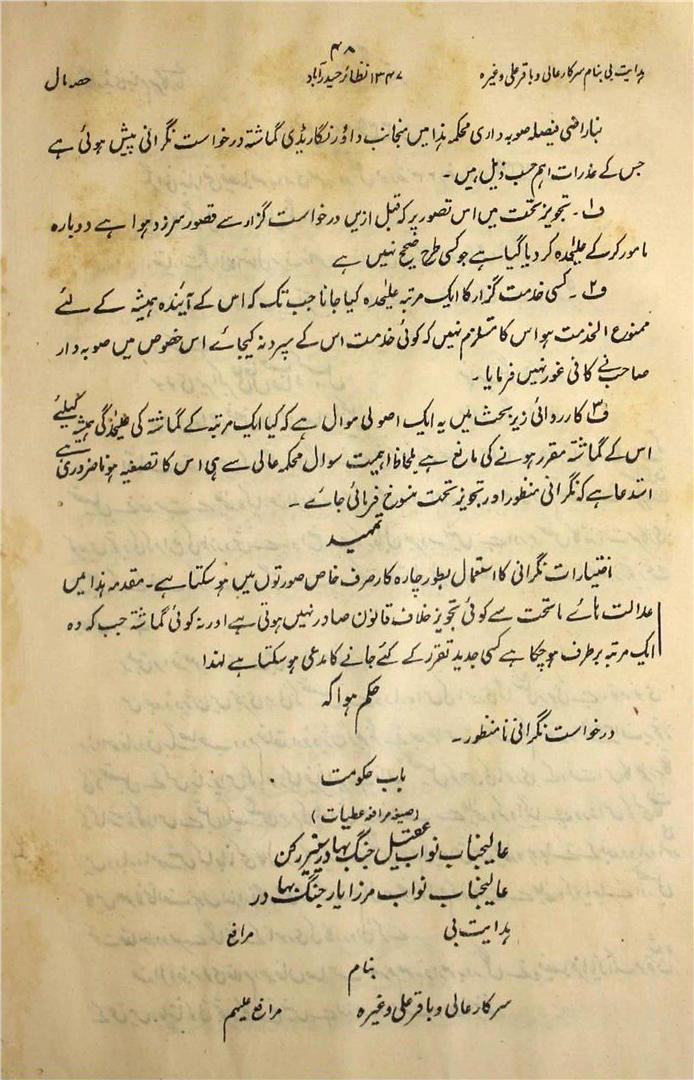 ۴۸
ہدایت بی بنام سرکار عالی و باقر علی وغیرہ ۱۳۴۷ نظائر حیدرآباد حصہ مال
بناراضی فیصلہ صوبہ داری محکمہ ہذا میں منجانب داؤر نگار یڈی گماشتہ درخواست نگرانی پیش ہوئی ہے
جس کے عذرات اہم حسب ذیل ہیں ۔
ف۱ ۔ تجویز تحت میں اس تصور پر کہ قبل ازیں درخواست گزار سے قصور سرزد ہوا ہے دوبارہ
مامور کرکے علیحدہ کر دیا گیا ہے جو کسی طرح صحیح نہیں ہے
ف۲ ۔ کسی خدمت گزار کا ایک مرتبہ علیحدہ کیا جانا جب تک کہ اس کے آیندہ ہمیشہ کے لئے
ممنوع الخدمت ہو اس کا مستلزم نہیں کہ کوئی خدمت اس کے سپرد نہ کیجائے اس خصوص میں صوبہ دار
صاحب نے کافی غور نہیں فرمایا ۔
ف۳ کارروائی زیر بحث میں یہ ایک اصولی سوال ہے کہ کیا ایک مرتبہ کے گماشتہ کی علیحدگی ہمیشہ کیلئے
اس کے گماشتہ مقرر ہونے کی مانع ہے بلحاظ اہمیت سوال محکمہ عالی سے ہی اس کا تصفیہ ہونا ضروری ہے
استدعا ہے کہ نگرانی منظور اور تجویز تحت منسوخ فرمائی جائے ۔
تمہید
اختیارات نگرانی کا استعمال بطور چارہ کار صرف خاص صورتوں میں ہوسکتا ہے ۔ مقدمہ ہذا میں
عدالت ہائے ماتحت سے کوئی تجویز خلاف قانون صادر نہیں ہوئی ہے اور نہ کوئی گماشتہ جب کہ وہ
ایک مرتبہ برطرف ہوچکا ہے کسی جدید تقرر کے کئے جانے کا مدعی ہوسکتا ہے لہذا
حکم ہوا کہ
درخواست نگرانی نامنظور ۔
باب حکومت
(صیغہ مرافعہ عطیات)
عالیجناب نواب عقیل جنگ بہادر سینیر رکن
عالیجناب نواب مرزا یار جنگ بہادر
ہدایت بی مرافع
بنام
سرکار عالی و باقر علی وغیرہ مرافع علیہم